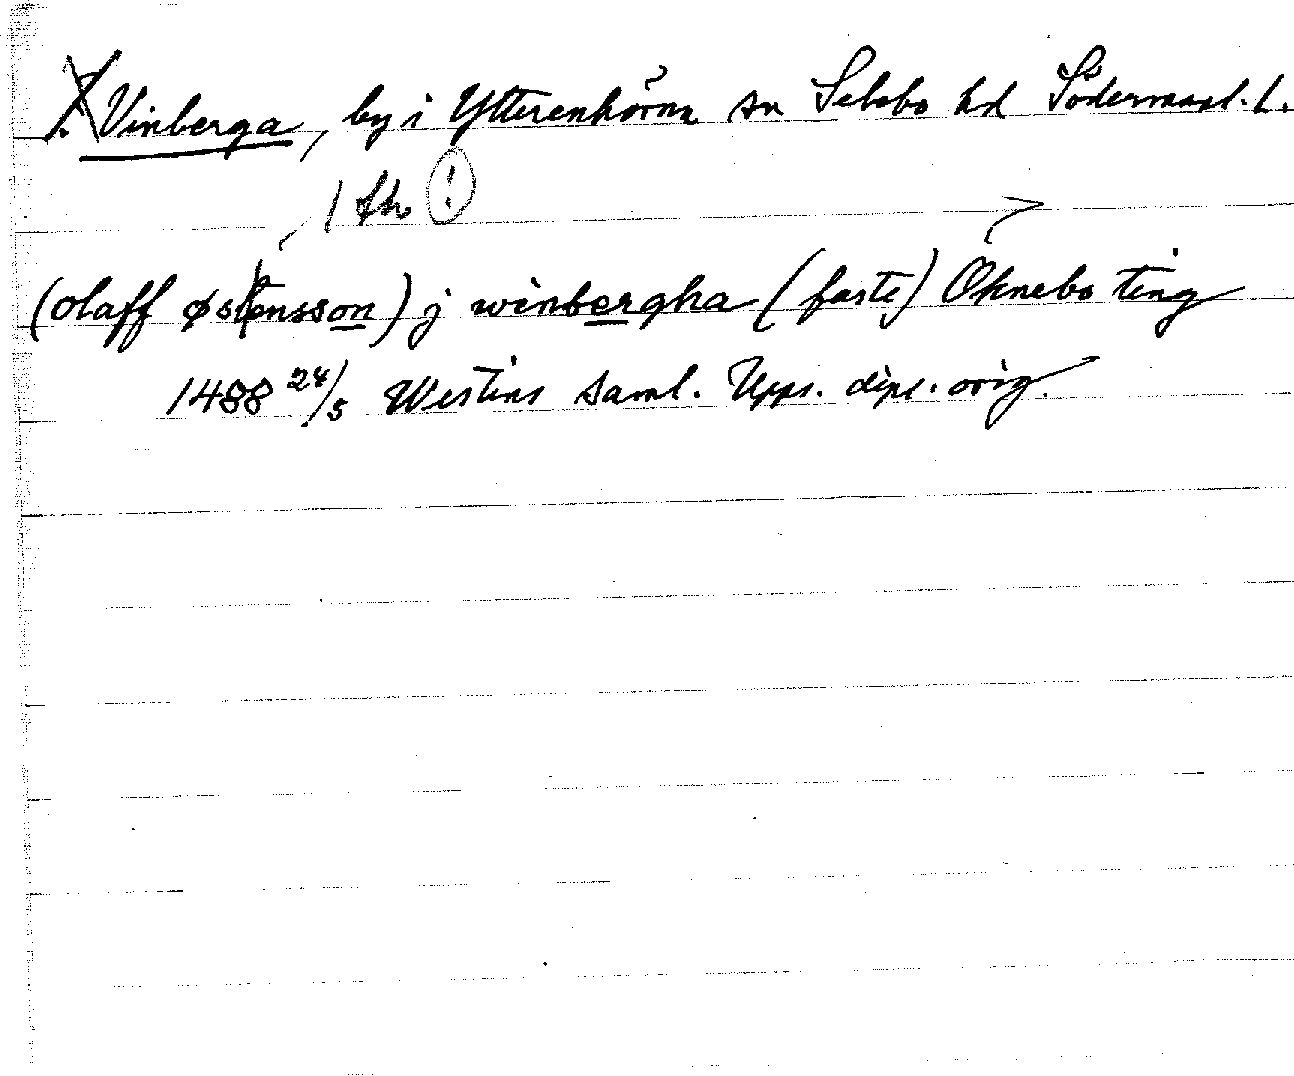 Vinberga, by i Ytterenhörna sn Selebo hd Södermanl. l.
/ th !
(olaff østensson) j winbergha (faste) Öknebo ting
1488 24/5 Westins saml. Upps. dipl. orig.